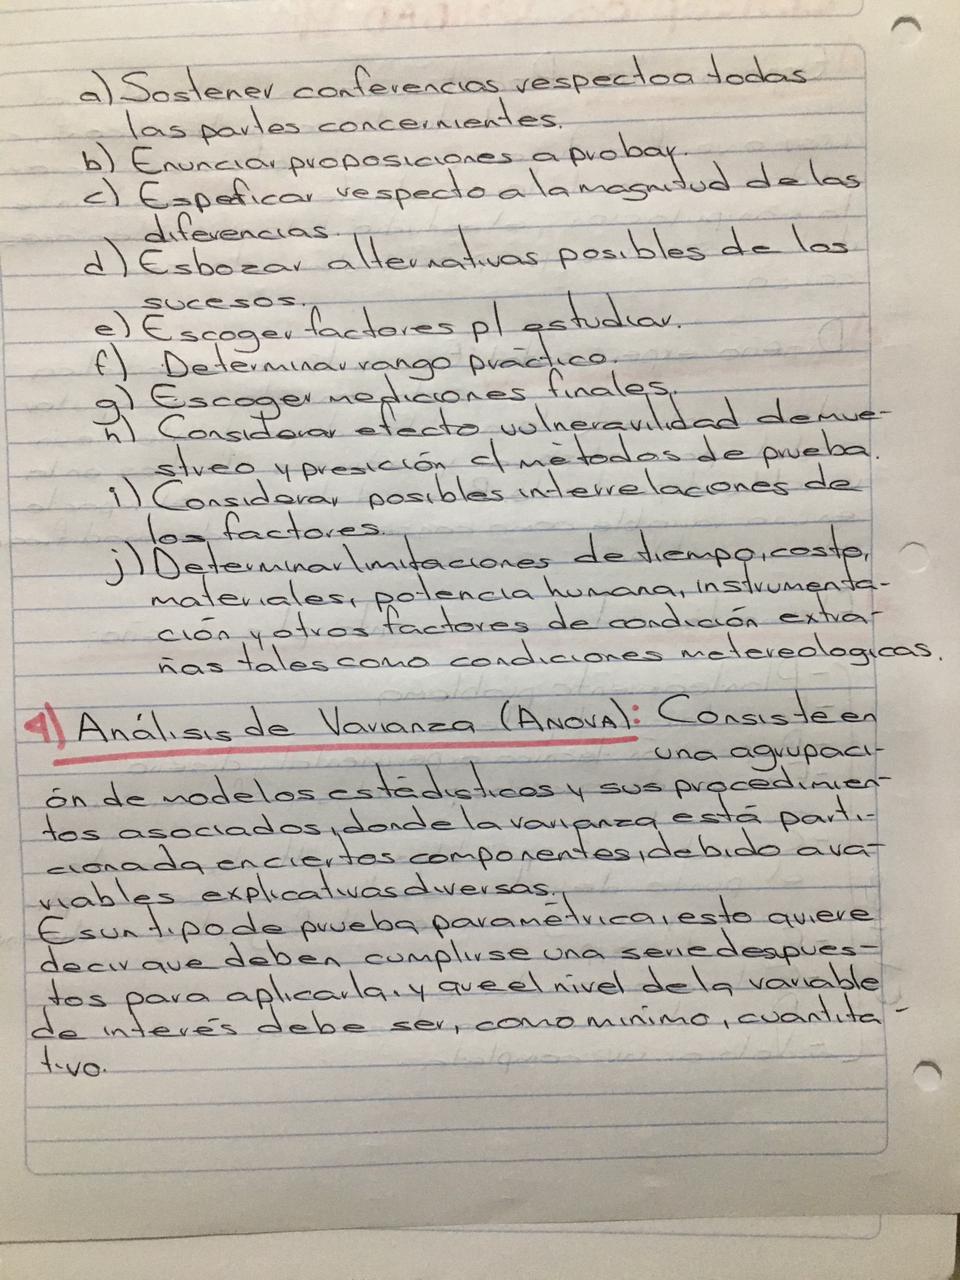 a) Sostener conferencias respecto a todas
las partes concernientes.
b) Enunciar proposiciones a probar.
c) Espeficar respecto a la magnitud de las
diferencias.
d) Esbozar alternativas posibles de los
sucesos.
e) Escoger factores p/ estudiar.
f) Determinar rango práctico.
g) Escoger mediciones finales.
h) Considerar efecto vulneravilidad de mue-
streo y presición d métodos de prueba.
i) Considerar posibles interrelaciones de
los factores.
j) Determinar limitaciones de tiempo, costo,
materiales, potencia humana, instrumenta-
ción y otros factores de condición extra-
ñas tales como condiciones metereologicas.
4) Análisis de Varianza (ANOVA): Consiste en
una agrupaci-
ón de modelos estádisticos y sus procedimien-
tos asociados, donde la varianza está parti-
cionada en ciertos componentes, debido a va-
riables explicativas diversas.
Es un tipo de prueba paramétrica, esto quiere
decir que deben cumplirse una serie de spues-
tos para aplicarla, y que el nivel de la variable
de interés debe ser, como minimo, cuantita-
tivo.